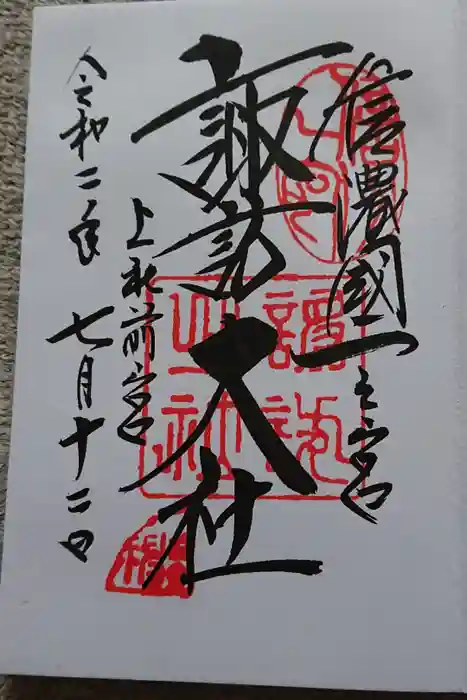 信濃國一之宮
諏訪大社
上社前宮
令和二年七月十二日
諏訪
之社